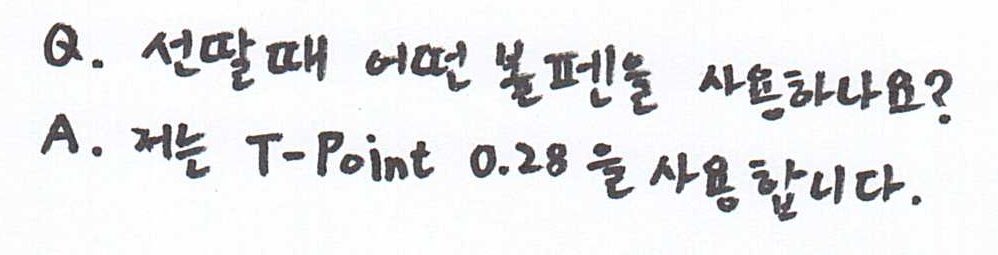 Q. 선딸 때 어떤 볼펜을 사용하나요?
A. 저는 T-Point 0.28을 사용합니다.